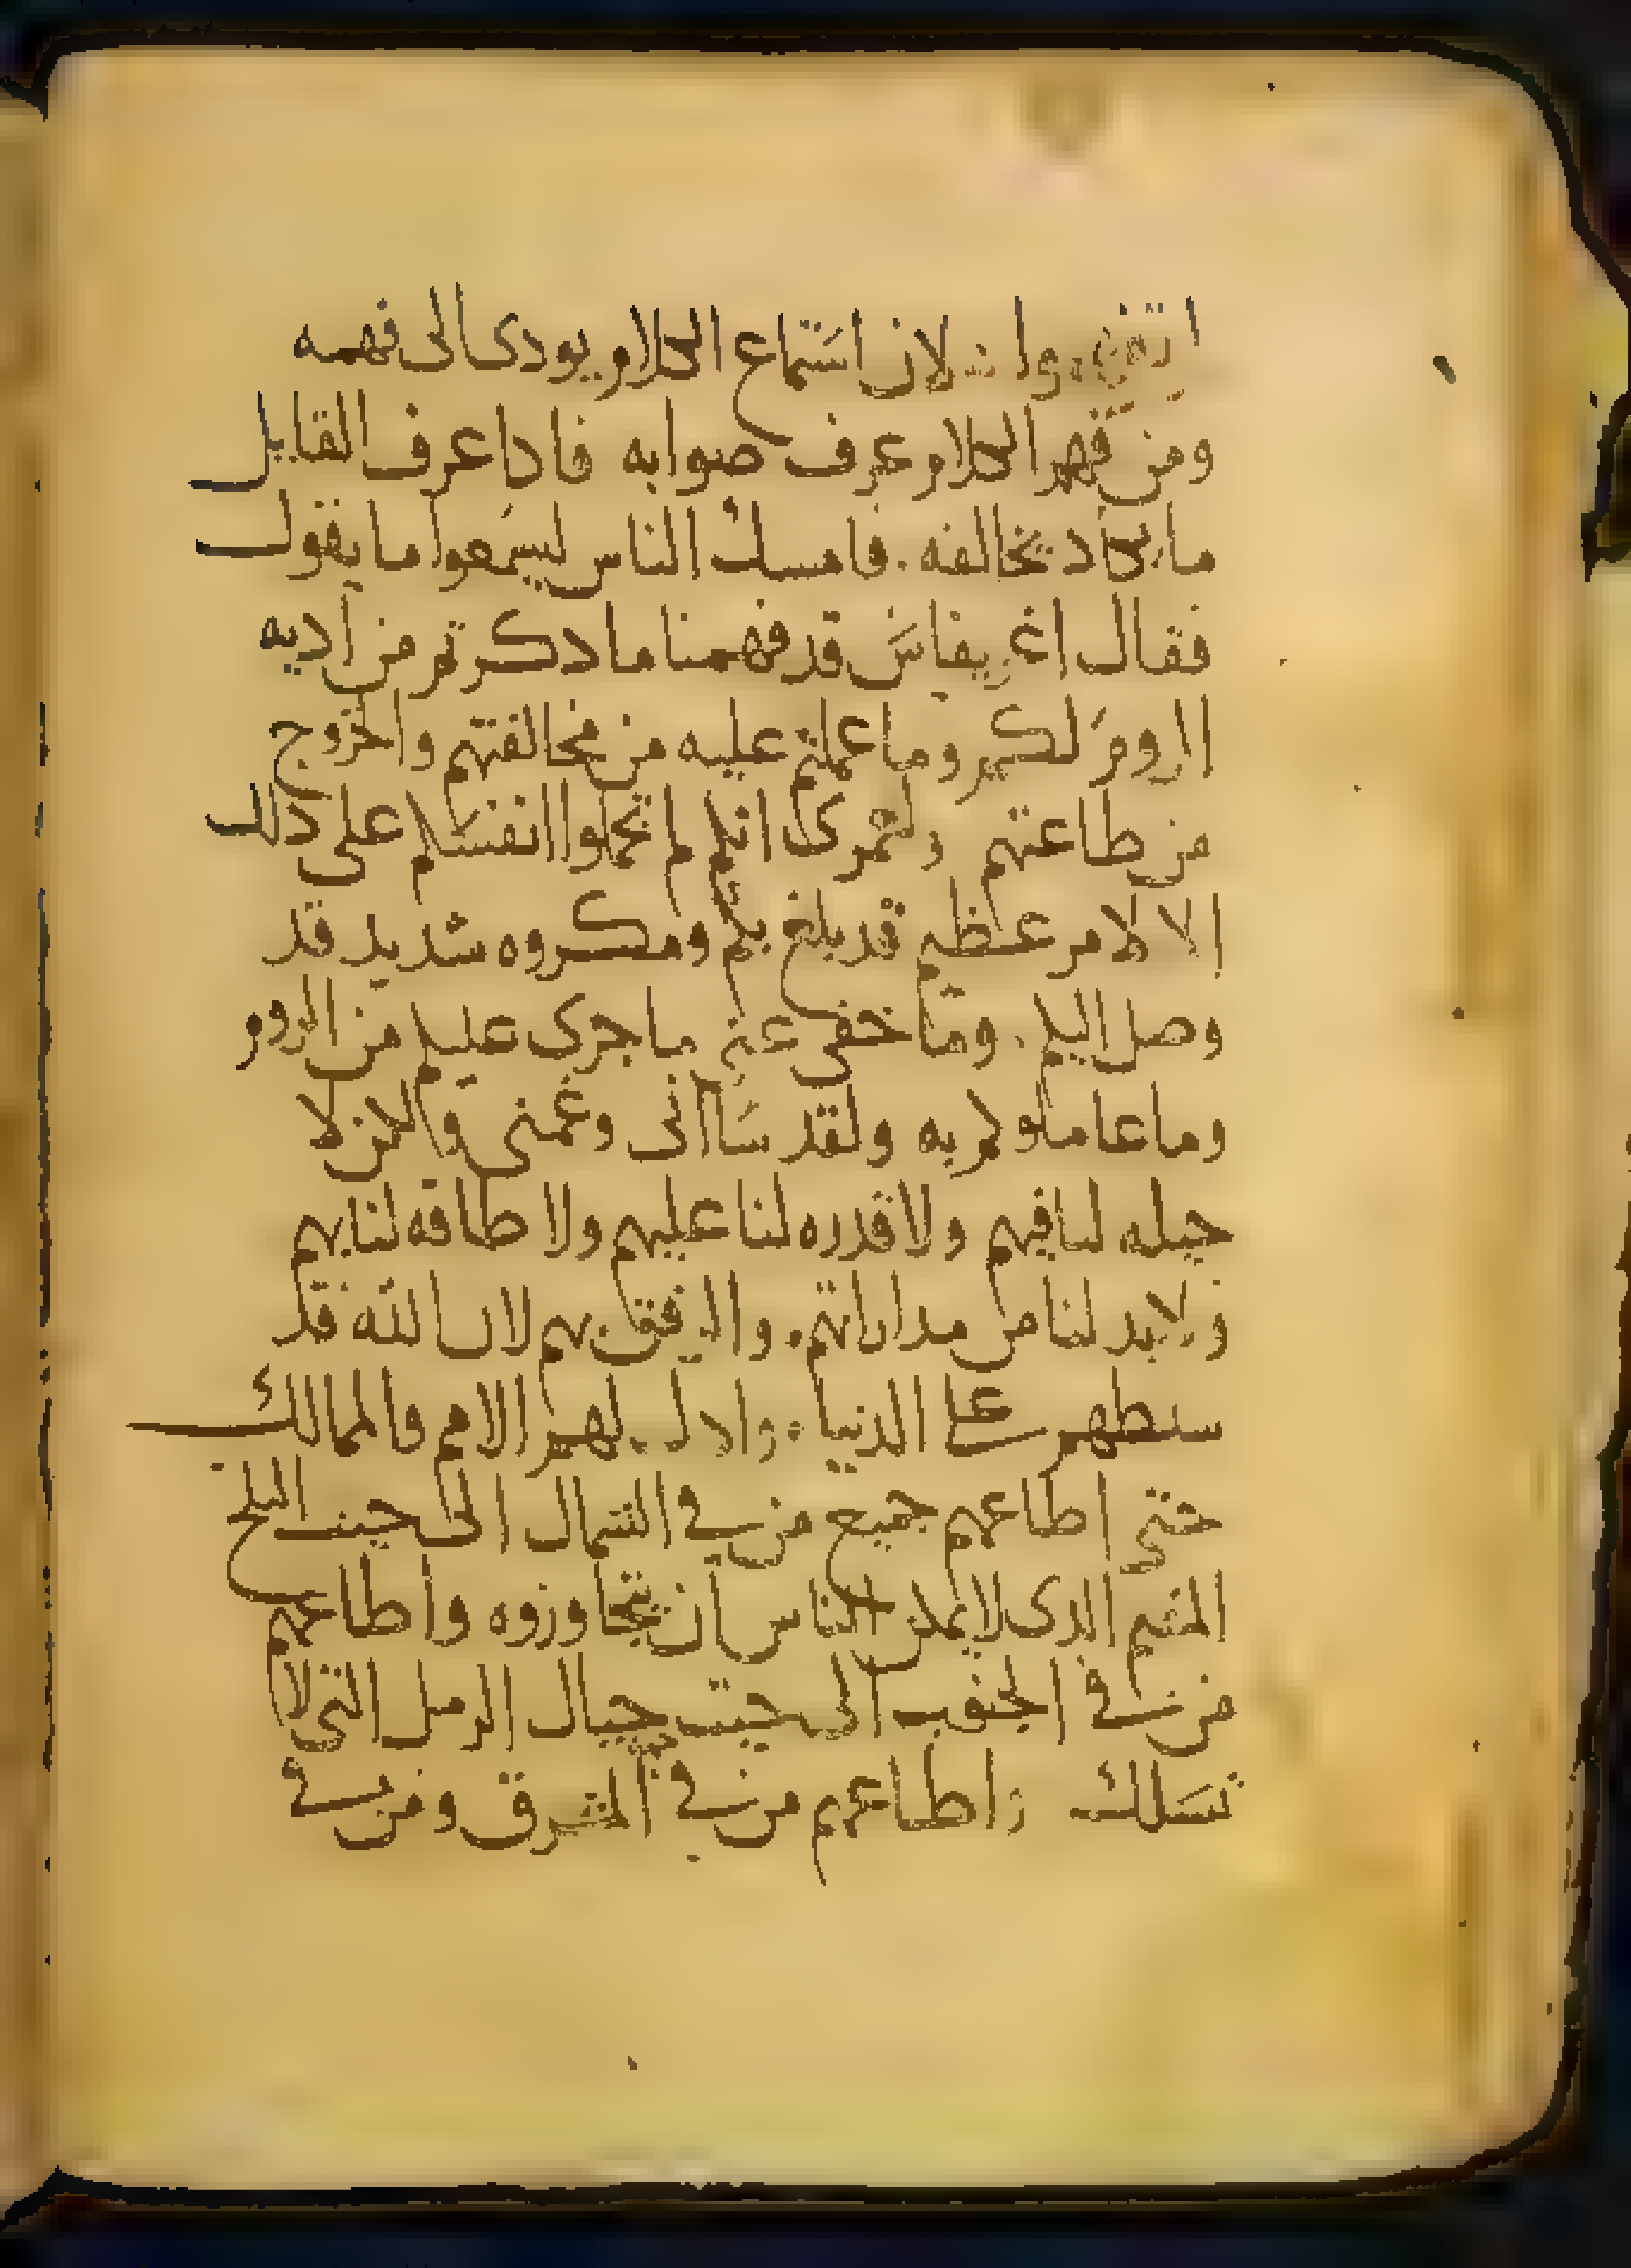 لان استماع الكلام يودى الى فهمه
ومن فهم الكلام عرف صوابه فادا عرف القايل
ما يكاد يخالفه . فامسك الناس ليسمعوا ما يقول
فقال اغريفاس قد فهمنا ما دكرتم من اديه
الروم لكم وما عملتم عليه من مخالفتهم والخروج
من طاعتهم ولعمرى انكم لم تحملوا انفسكم على دلك
الا لامر عظيم قد بلغ بكم ومكروه شديد قد
وصل اليكم . وما خفى عنى ما جرى عليكم من الروم
وما عاملوكم به ولقد ساانى وغمنى ولكن لا
حيله لنا فيهم ولا قدره لنا عليهم ولا طاقه لنا بهم
ولا بد لنا من مداراتهم . والرفق بهم لان الله قد
على الدنيا . لهم الامم والممالك
حتى اطاعهم جميع من فى الشمال الى حيث الثلج
المقيم الدى لا يمكن الناس ان يتجاوزوه واطاعهم
من فى الجنوب الى حيث جبال الرمل التى لا
تسلك واطاعهم من فى الشرق ومن فى